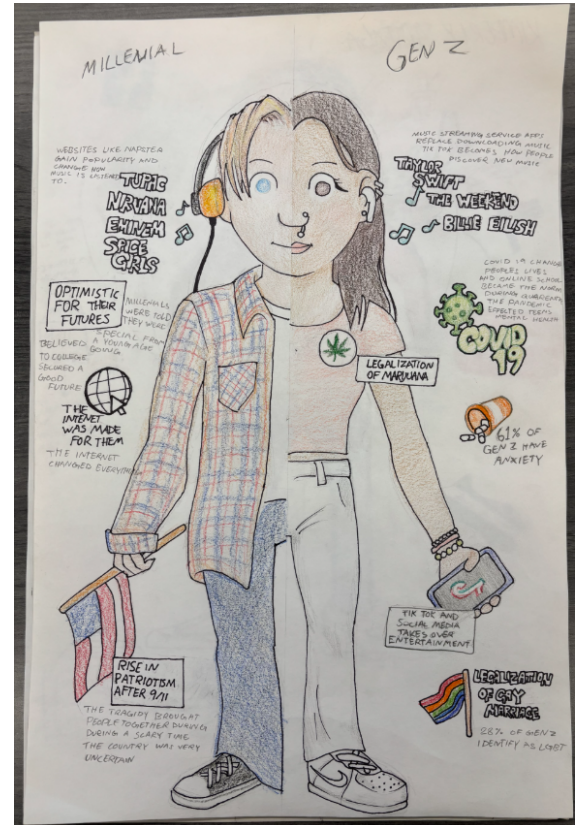 MILLENIAL
GEN Z
WEBSITES LIKE NAPSTER
GAIN POPULARITY AND
CHANGE HOW
MUSIC IS LISTENED
TO.
TUPAC
NIRVANA
EMINEM
SPICE
GIRLS
OPTIMISTIC
FOR THEIR
FUTURES
MILLENIALS
WERE TOLD
THEY WERE
SPECIAL FROM
A YOUNG AGE
BELIEVED
GOING
TO COLLEGE
SECURED A
GOOD
FUTURE
THE
INTENET
WAS MADE
FOR THEM
THE INTERNET
CHANGED EVERYTHING
RISE IN
PATRIOTISM
AFTER 9/11
THE TRAGIDY BROUGHT
PEOPLE TOGETHER DURING
DURING A SCARY TIME
THE COUNTRY WAS VERY
UNCERTAIN
MUSIC STREAMING SERVICE APPS
REPLACE DOWNLOADING MUSIC
TIK TOK BECOMES HOW PEOPLE
DISCOVER NEW MUSIC
TAYLOR
SWIFT
THE WEEKEND
BILLIE EILISH
COVID 19 CHANGE
PEOPLES LIVES
AND ONLINE SCHOOL
BECAME THE NORM
DURING QUARENTINE
THE PANDEMIC
EFFECTED TEENS
MENTAL HEALTH
COVID
19
LEGALIZATION
OF MARIJUANA
61% OF
GEN Z HAVE
ANXIETY
TIK TOK AND
SOCIAL MEDIA
TAKES OVER
ENTERTAINMENT
LEGALIZATION
OF GAY
MARRIAGE
28% OF GEN Z
IDENTIFY AS LGBT